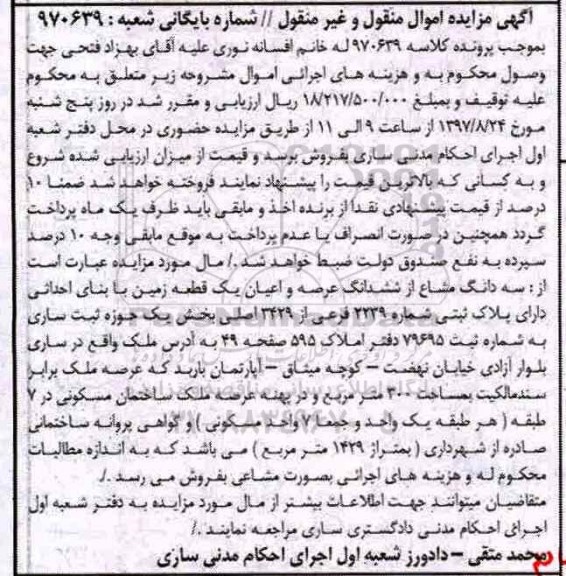 آگهی مزایده اموال منقول و غیر منقول // شماره بایگانی شعبه : ۹۷۰۶۳۹
بموجب پرونده کلاسه ۹۷۰۶۳۹ له خانم افسانه نوری علیه آقای بهزاد فتحی جهت
وصول محکوم به و هزینه های اجرائی اموال مشروحه زیر متعلق به محکوم
علیه توقیف و بمبلغ ۱۸/۲۱۷/۵۰۰/۰۰۰ ریال ارزیابی و مقرر شد در روز پنج شنبه
مورخ ۱۳۹۷/۸/۲۴ از ساعت ۹ الی ۱۱ از طریق مزایده حضوری در محل دفتر شعبه
اول اجرای احکام مدنی ساری بفروش برسد و قیمت از میزان ارزیابی شده شروع
و به کسانی که بالاترین قیمت را پیشنهاد نمایند فروخته خواهد شد ضمنا ۱۰
درصد از قیمت پیشنهادی نقدا از برنده اخذ و مابقی باید ظرف یک ماه پرداخت
گردد همچنین در صورت انصراف یا عدم پرداخت به موقع مابقی وجه ۱۰ درصد
سپرده به نفع صندوق دولت ضبط خواهد شد ./ مال مورد مزایده عبارت است
از : سه دانگ مشاع از ششدانگ عرصه و اعیان یک قطعه زمین با بنای احداثی
دارای پلاک ثبتی شماره ۲۲۳۹ فرعی از ۳۴۲۹ اصلی بخش یک حوزه ثبت ساری
به شماره ثبت ۷۹۶۹۵ دفتر املاک ۵۹۵ صفحه ۴۹ به آدرس ملک واقع در ساری
بلوار آزادی خیابان نهضت – کوچه میثاق – آپارتمان باربد که عرصه ملک برابر
سندمالکیت بمساحت ۳۰۰ متر مربع و در پهنه عرصه ملک ساختمان مسکونی در ۷
طبقه ( هر طبقه یک واحد و جمعا ۷ واحد مسکونی ) و گواهی پروانه ساختمانی
صادره از شهرداری ( بمتراژ ۱۴۲۹ متر مربع ) می باشد که به اندازه مطالبات
محکوم له و هزینه های اجرائی بصورت مشاعی بفروش می رسد ./
متقاضیان میتوانند جهت اطلاعات بیشتر از مال مورد مزایده به دفتر شعبه اول
اجرای احکام مدنی دادگستری ساری مراجعه نمایند ./
محمد متقی – دادورز شعبه اول اجرای احکام مدنی ساری